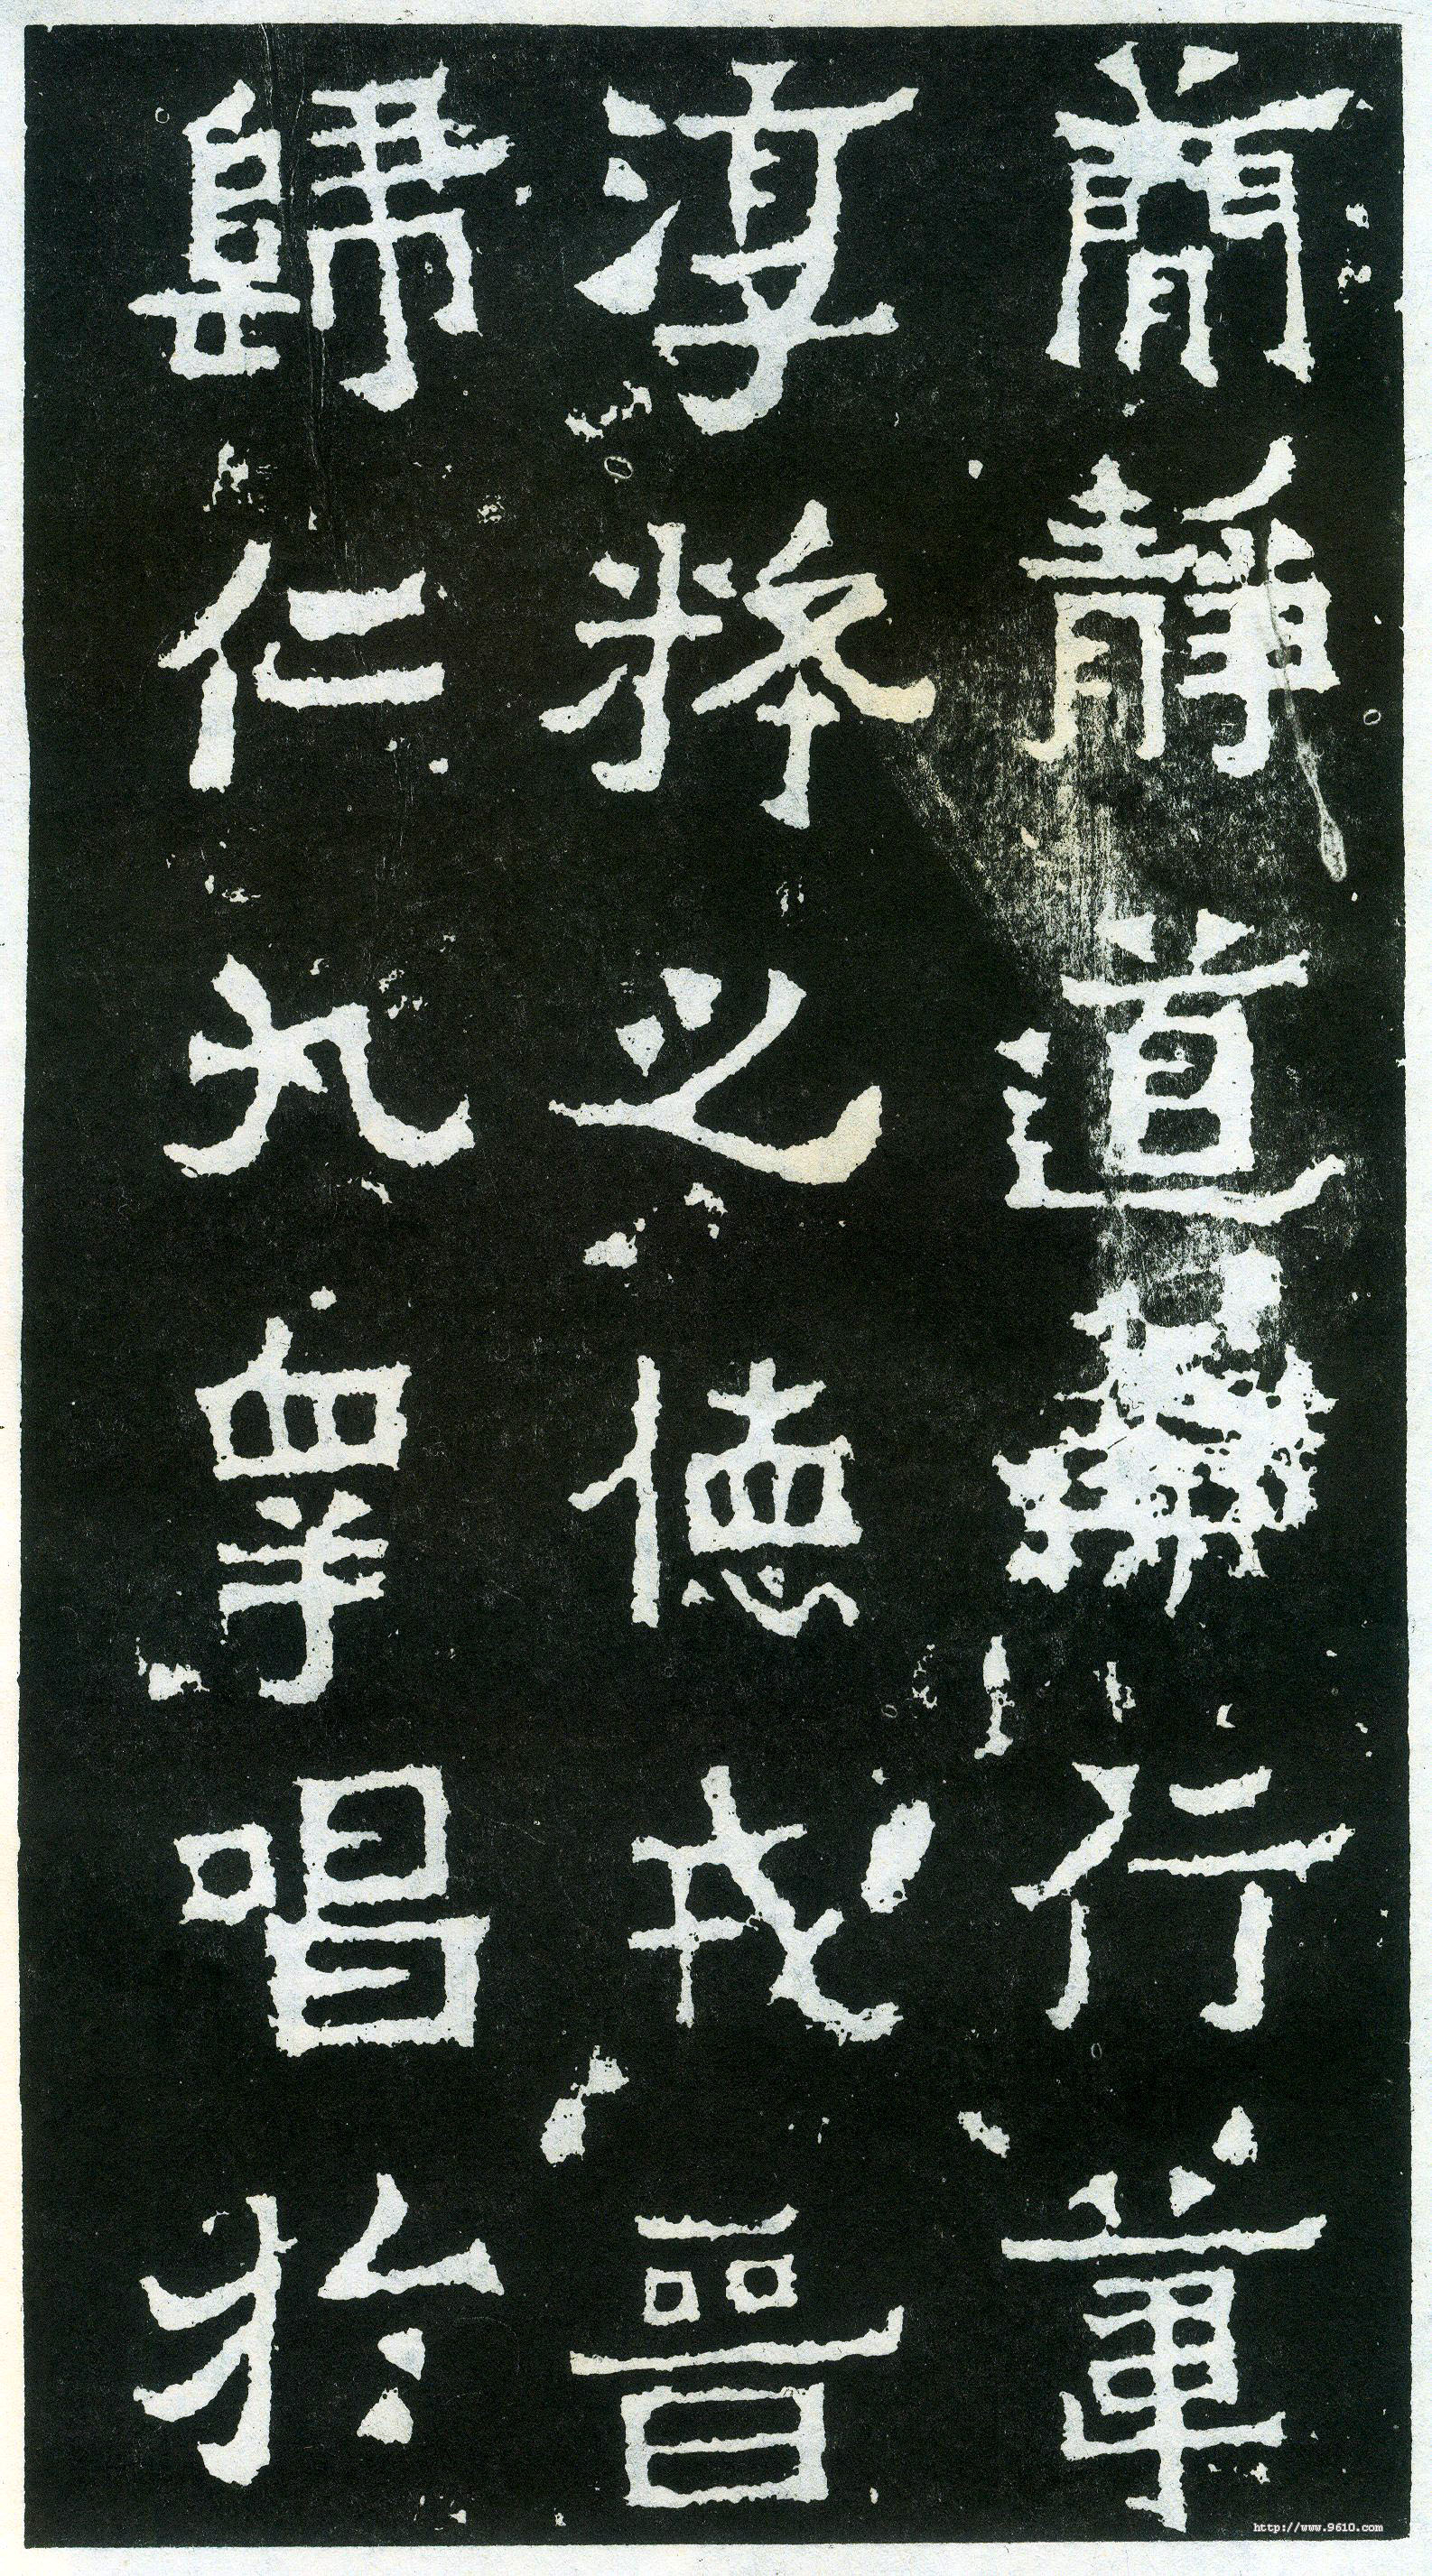 簡靜道兼行葦
淳粹之德戎晉
歸仁九皋唱於
http://www.9610.com